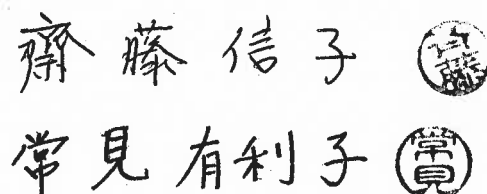 齋藤信子 齋藤
常見有利子 常見